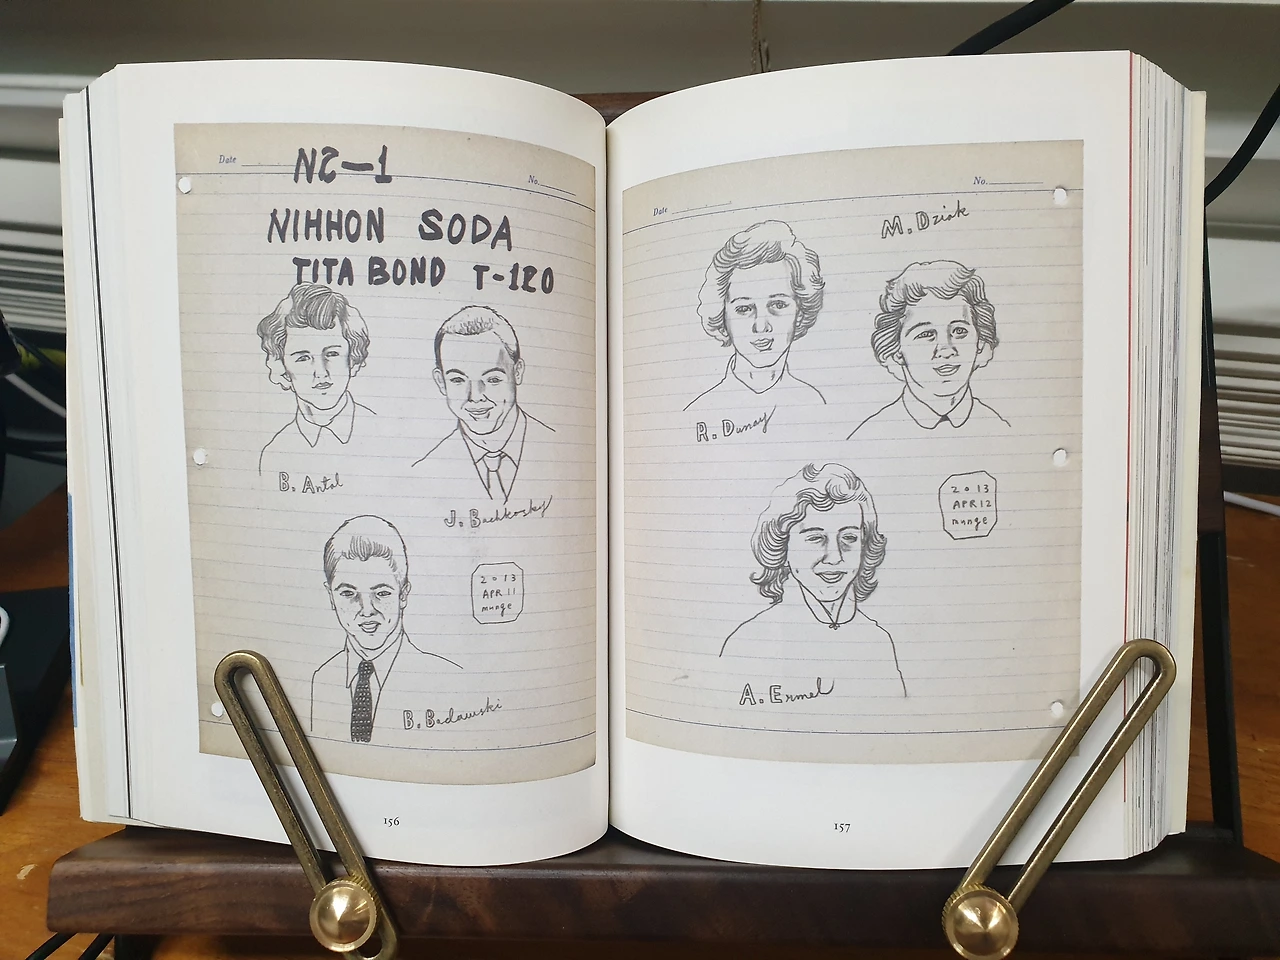 Date
No.
NS-1
NIHHON SODA
TITA BOND T-120
B. Antal
J. Bachkosky
2013
APR 11
munge
B. Badawski
156
Date
No.
M. Dziak
R. Dunay
2013
APR 12
munge
A. Ermel
157